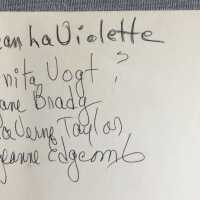 ean LaViolette
nita Vogt ?
ane Brady
aVerne Taylor
eanne Edgcomb